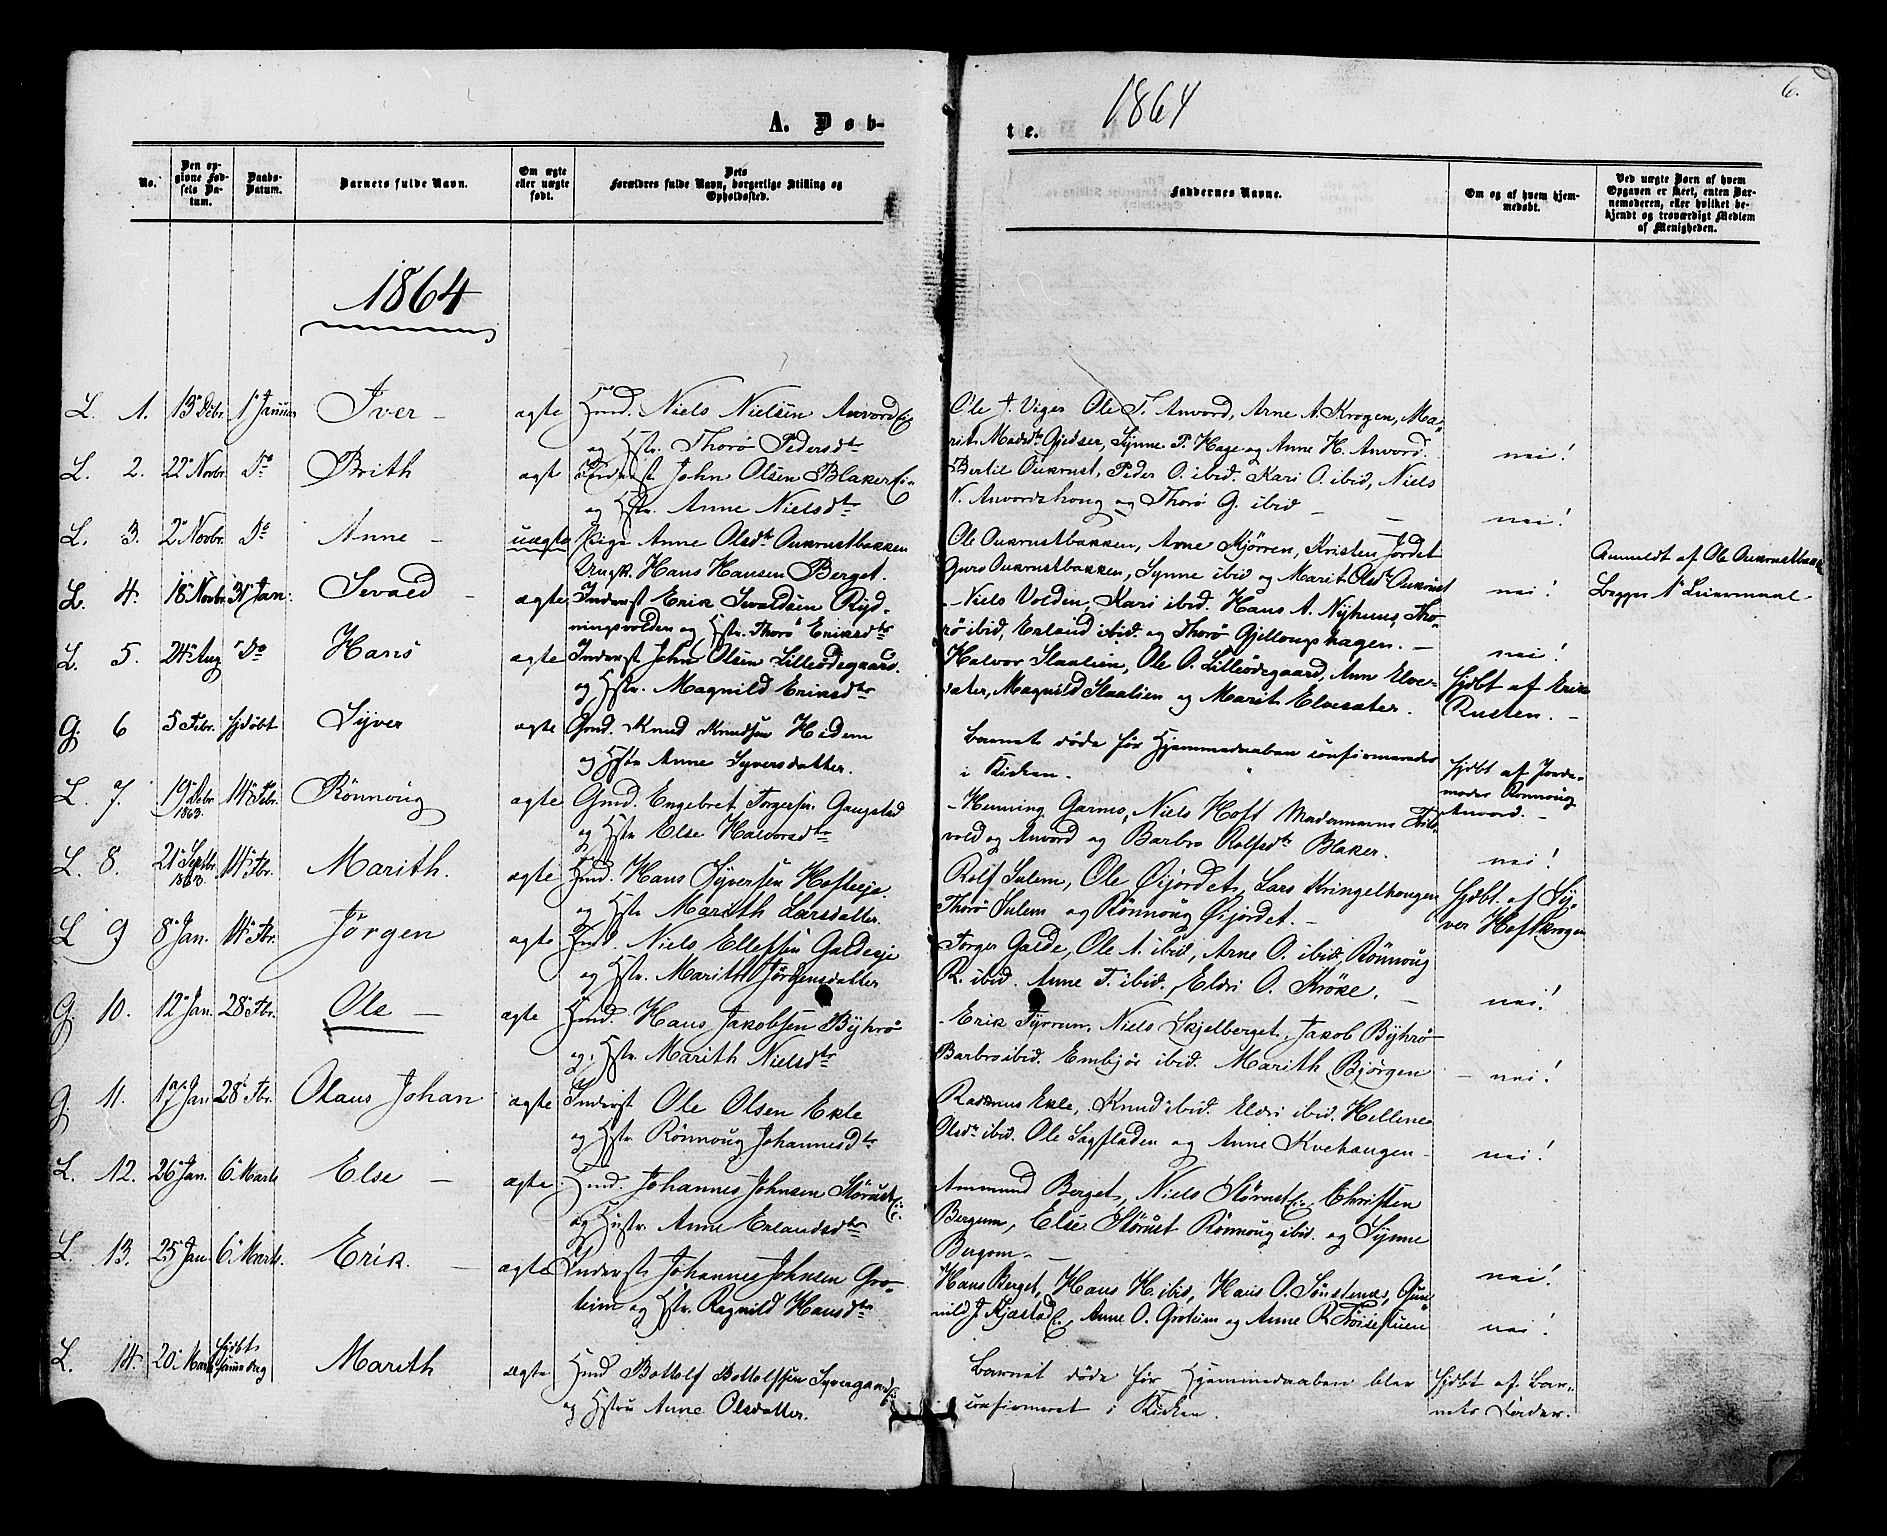 A. Døb-
te.
1864
6.
No.
Den opgivne Fødsels Datum.
Daabs-Datum.
Barnets fulde Navn.
Om ægte eller uægte født.
Dets Forældres fulde Navn, borgerlige Stilling og Opholdssted.
Faddernes Navne.
Om og af hvem hjemmedøbt.
Ved uægte Børn af hvem Opgaven er skeet, enten Barnemoderen, eller hvilket bekjendt og troværdigt Medlem af Menigheden.
1864
L. 1. 13 Debr. 1 Januar Iver - ægte Gmd. Niels Nielsen Anvord
og Hstr. Thorø Pedersdtr
Ole T. Viger Ole T. Anvord, Arne A. Krogen, Ma-
rit Madsdtr Gjedser, Synne P. Hage og Anne H. Anvord. nei!
L. 2. 22 Novbr. Do Brith ægt Inderst John Olsen Blaker
og Hstr. Anne Nielsdtr
Bertil Aukrust, Peder O. ibid. Kari O. ibid, Niels
N. Anvordshoug og Thorø G. ibid - nei!
L. 3. 2 Novbr. Do Anne - uægte Pige Anne Olsdtr Aukrustbakken
Ungk. Hans Hansen Berget.
Ole Aukrustbakken, Arne Kjørren, Kristen Jordet
Guro Aukrustbakken, Synne ibid og Marit Olsdtr Aukrust nei!
Anmeldt af Ole Aukrustbakk
Begges 1ste Leiermaal
L. 4. 18 Novbr. 31 Jan. Sevald - ægte Inderst Erik Sevaldsen Ryd-
ningsvolden og Hstr. Thorø Eriksdtr
Niels Volden, Kari ibid. Hans A. Nyhuus, Tho-
rø ibid, Erland ibid. og Thorø Gjeilougshagen. - nei!
L. 5. 24 Aug Do Hans ægte Inderst John Olsen Lilleødegaard.
og Hstr. Magnild Eriksdtr
Halvor Slaalien, Ole O. Lilleødegaard, Ann Elve-
sæter, Magnild Slaalien og Marit Elvesæter.
Hjdbt af Erik
Rusten. -
G. 6 5 Febr. hjdøbt Syver ægte Gmd. Knud Knudsen Hedem
og Hstr Anne Syversdatter.
Barnets døde før Hjemmedaaben confirmeredes
i Kirken.
Hjdbt af Jorde-
moder Rønnoug
Anvord. -
L. 7. 19 Debr 1863. 14 Febr. Rønnoug ægte Gmd. Engebret Torgersen Gaupstad
og Hstr Else Halvorsdtr
Henning Garmo, Niels Hoft Madamerne
vold og Anvord og Barbro Rolfsdtr Blaker. nei!
L. 8. 21 Septbr. 1863. 14 Fbr. Marith. ægte Hmd. Hans Syversen Hofteeje
og Hstr Marith Larsdatter.
Rolf Sulem, Ole Øijordet, Lars Kringelhougen
Thorø Sulem og Rønnoug Øijordet. -
Hjdbt. af Sy-
ver Hoftkrogen
L 9 8 Jan. 14 Fbr. Jørgen ægte Hmd. Niels Ellefsen Galdeeje
og Hstr. Marith Jørgensdatter
Torger Galde, Ole A. ibid, Arne O. ibid, Rønnoug
R. ibid. Anne T. ibid. Eldri O. Krøke. - nei!
G. 10. 12 Jan. 28 Fbr. Ole - ægte Hmd. Hans Jakobsen Byhrø
og Hstr. Marith Nielsdtr
Erik Fyrrun, Niels Skjelberget, Jakob Byhrø
Barbro ibid. Embjør ibid. Marith Bjørgen - nei!
G. 11. 17 Jan 28 Fbr. Olaus Johan ægte Inderst Ole Olsen Ekle
og Hstr Rønnoug Johannesdtr
Rasmus Ekle, Knud ibid. Eldri ibid. Hellene
Olsdtr ibid. Ole Sagfladen og Anne Kvehaugen - nei!
L. 12. 26 Jan. 6 Marts Else - ægte. Gmd. Johannes Johnsen Størust
og Hustr. Anne Erlandsdtr
Ammund Berget, Niels Størust Christen
Bergum, Else Størust Rønnoug ibid. og Synne
Bergom. - nei!
L. 13. 25 Jan 6 Marts. Erik. - ægte Inderst Johannes Johnsen Gro-
teim og Hstr. Ragnild Hansdtr
Hans Berget, Hans H. ibid, Hans O. Sønstenes, Gun-
nild J. Kjæstad, Anne O. Groteim og Anne R. Frøisestuen nei!
L. 14. 20 Marts hjdbt samme Dag Marith ægte Gmd Bottolf Bottolfsen Syvergaard
og Hstru Anne Olsdatter.
Barnet døde før Hjemmedaaben blev
confirmeret i Kirken.
Hjdbt af Bar-
nets Fader.